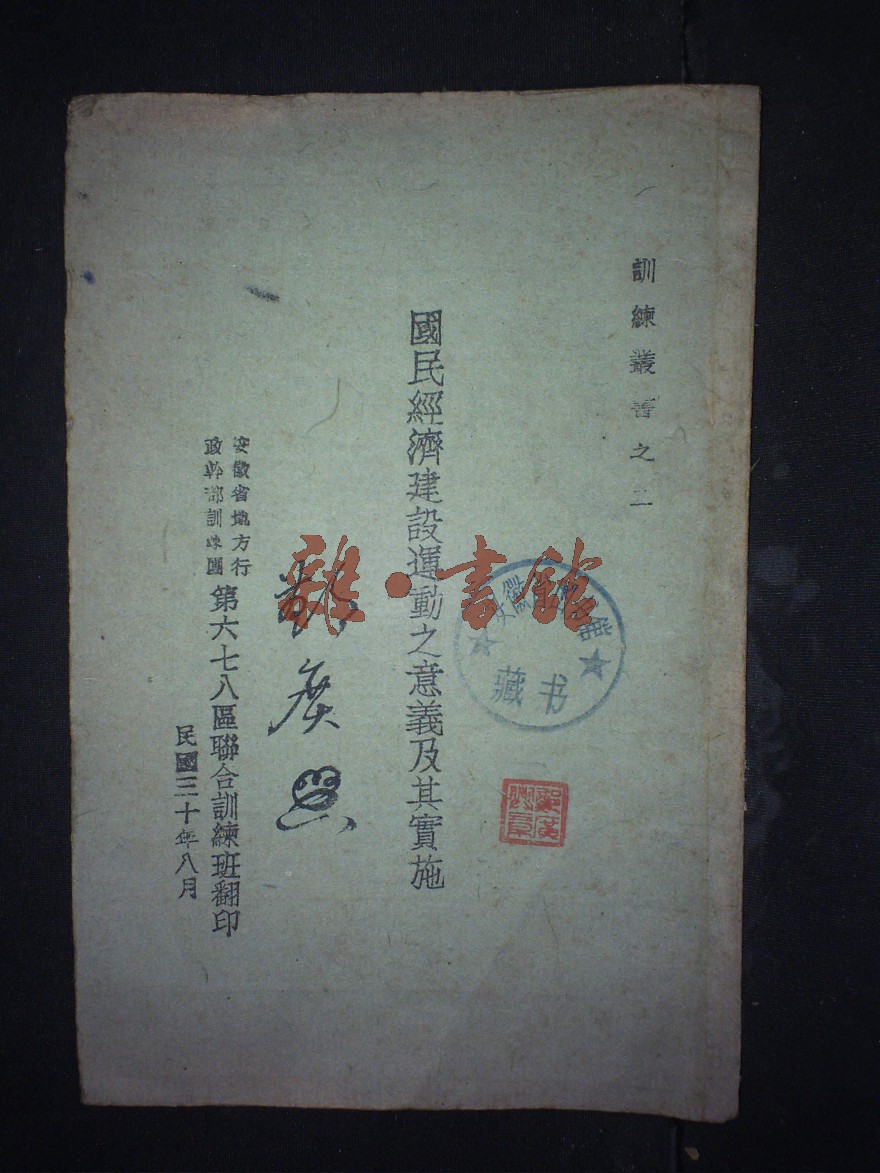 訓練叢書之二
國民經濟建設運動之意義及其實施
安徽省地方行
政幹部訓練團
第六七八區聯合訓練班翻印
民國三十年八月
藏书
雜·書館